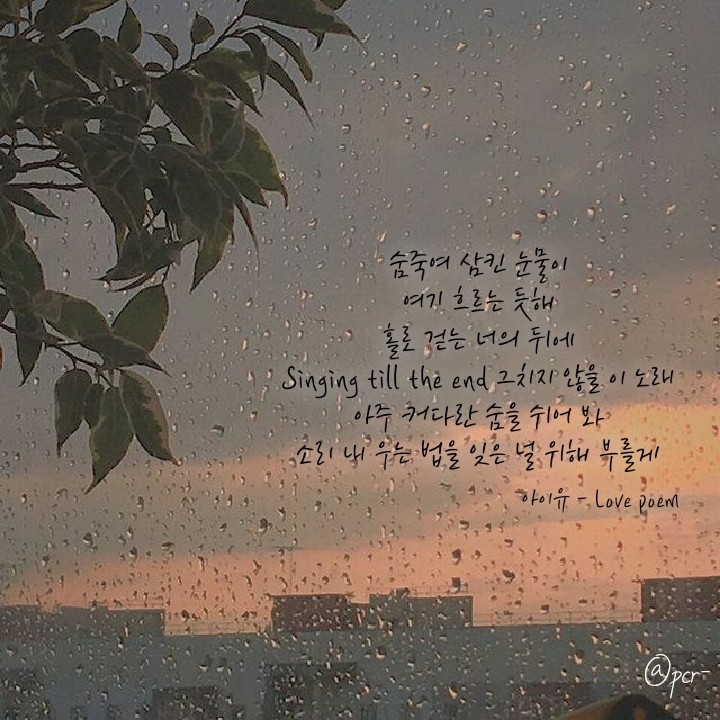 숨죽여 삼킨 눈물이
여기 흐르는 듯해
홀로 걷는 너의 뒤에
Singing till the end 그치지 않을 이 노래
아주 커다란 숨을 쉬어 봐
소리 내 우는 법을 잊은 널 위해 부를게
아이유 - Love poem
@pcr-